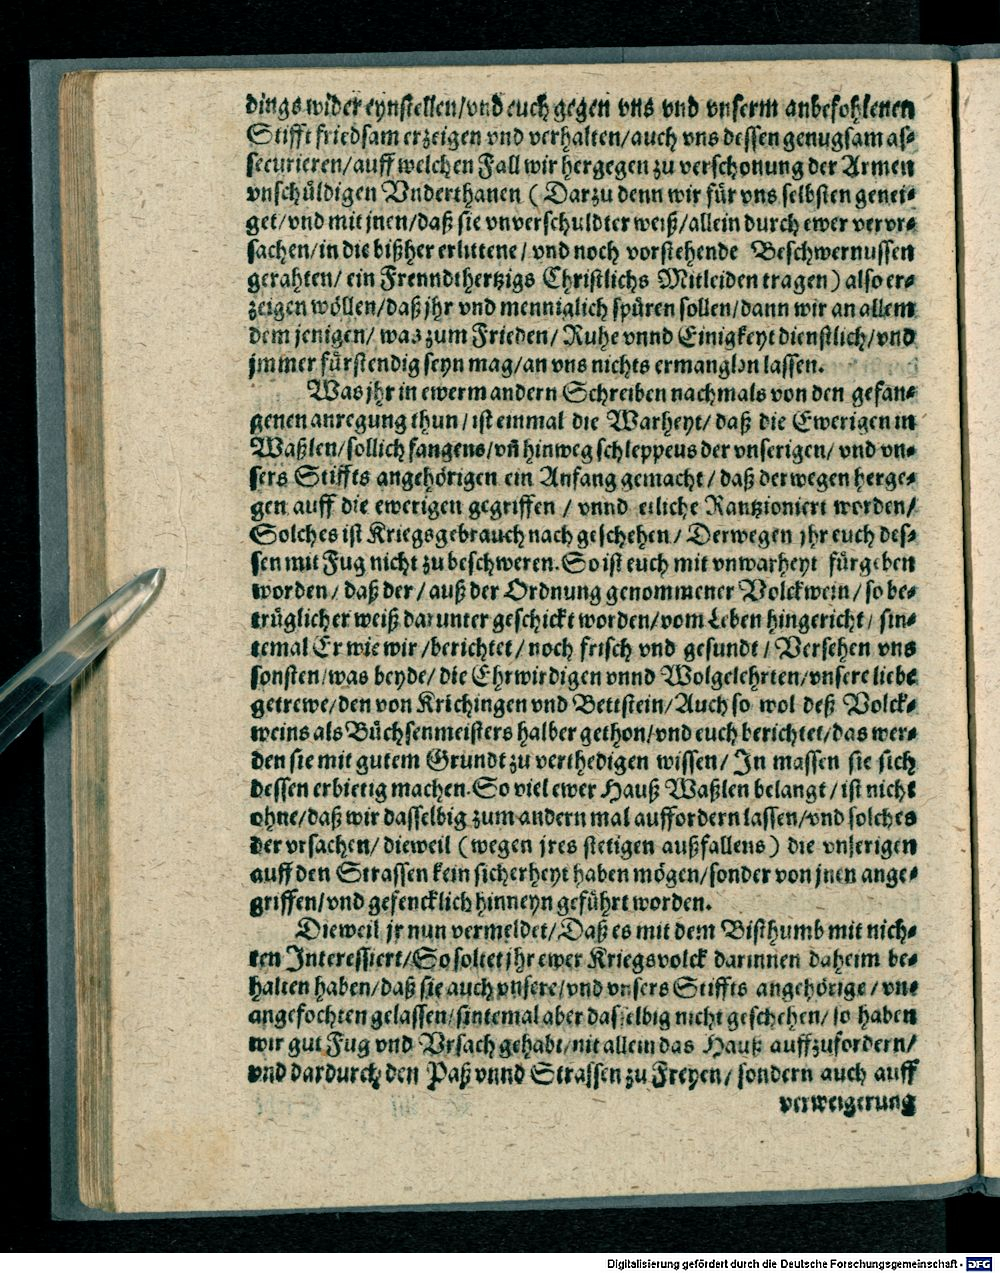 dings wider eynstellen/vnd euch gegen vns vnd vnserm anbefohlenen
Stifft friedsam erzeigen vnd verhalten/auch vns dessen genugsam as⸗
securieren/auff welchen Fall wir hergegen zu verschonung der Armen
vnschüldigen Vnderthanen (Darzu denn wir für vns selbsten genei⸗
get/vnd mit jnen/daß sie vnverschuldter weiß/allein durch ewer vervr⸗
sachen/in die bißher erlittene/vnd noch vorstehende Beschwernussen
gerahten/ein Frenndthertzigs Christlichs Mitleiden tragen) also er⸗
zeigen wöllen/daß jhr vnd menniglich spüren sollen/dann wir an allem
dem jenigen/was zum Frieden/Ruhe vnnd Einigkeyt dienstlich/vnd
jmmer fürstendig seyn mag/an vns nichts ermanglen lassen.
Was jhr in ewerm andern Schreiben nachmals von den gefan⸗
genen anregung thun/ist einmal die Warheyt/daß die Ewerigen in
Waßlen/sollich fangens/vñ hinweg schleppeus der vnserigen/vnd vn⸗
sers Stiffts angehörigen ein Anfang gemacht/daß derwegen herge⸗
gen auff die ewerigen gegriffen/vnnd etliche Rantzioniert worden/
Solches ist Kriegsgebrauch nach geschehen/Derwegen jhr euch des⸗
sen mit Fug nicht zu beschweren. So ist euch mit vnwarheyt fürgeben
worden/daß der/auß der Ordnung genommener Volckwein/so be⸗
trüglicher weiß darunter geschickt worden/vom Leben hingericht/sin⸗
temal Er wie wir/berichtet/noch frisch vnd gesundt/Versehen vns
sonsten/was beyde/die Ehrwirdigen vnnd Wolgelehrten/vnsere liebe
getrewe/den von Krichingen vnd Bettstein/Auch so wol deß Volck⸗
weins als Büchsenmeisters halber gethon/vnd euch berichtet/das wer⸗
den sie mit gutem Grundt zu verthedigen wissen/In massen sie sich
dessen erbietig machen. So viel ewer Hauß Waßlen belangt/ist nicht
ohne/daß wir dasselbig zum andern mal auffordern lassen/vnd solches
der vrsachen/dieweil (wegen jres stetigen außfallens) die vnserigen
auff den Strassen kein sicherheyt haben mögen/sonder von jnen ange⸗
griffen/vnd gefencklich hinneyn geführt worden.
Dieweil jr nun vermeldet/Daß es mit dem Bisthumb mit nich⸗
ten Interessiert/So soltet jhr ewer Kriegsvolck darinnen daheim be⸗
halten haben/daß sie auch vnsere/vnd vnsers Stiffts angehörige/vn⸗
angefochten gelassen/sintemal aber dasselbig nicht geschehen/so haben
wir gut Fug vnd Vrsach gehabt/nit allein das Hauß auffzufordern/
vnd dardurch den Paß vnnd Strassen zu Freyen/sondern auch auff
verweigerung
Digitalisierung gefördert durch die Deutsche Forschungsgemeinschaft - DFG